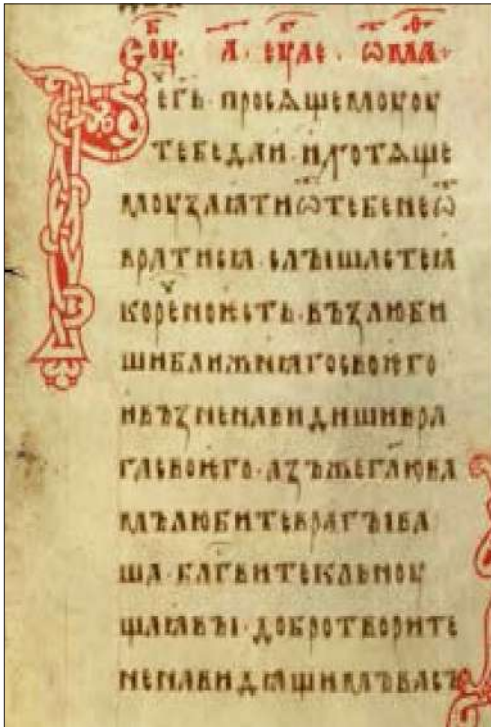 Соуⷠ · а҃ · еуⷢле · ѿ маⷴ
Рⷱегь҃ · просѧщемоуоу
тебедаи · ихотѧще
моузаꙗтиѿтебенеѿ
вратисꙗ · слꙑшастеꙗ
кореⷱноѥсть · възлюби
шиближнꙗгосвоѥго
ивъзненавидишивра
гасвоѥго · азъжегл҃юва
мълюбитеврагꙑва
ша · бл҃гвитекльноу
щаꙗвꙑ · добротворите
ненавидꙗщимъвасъ